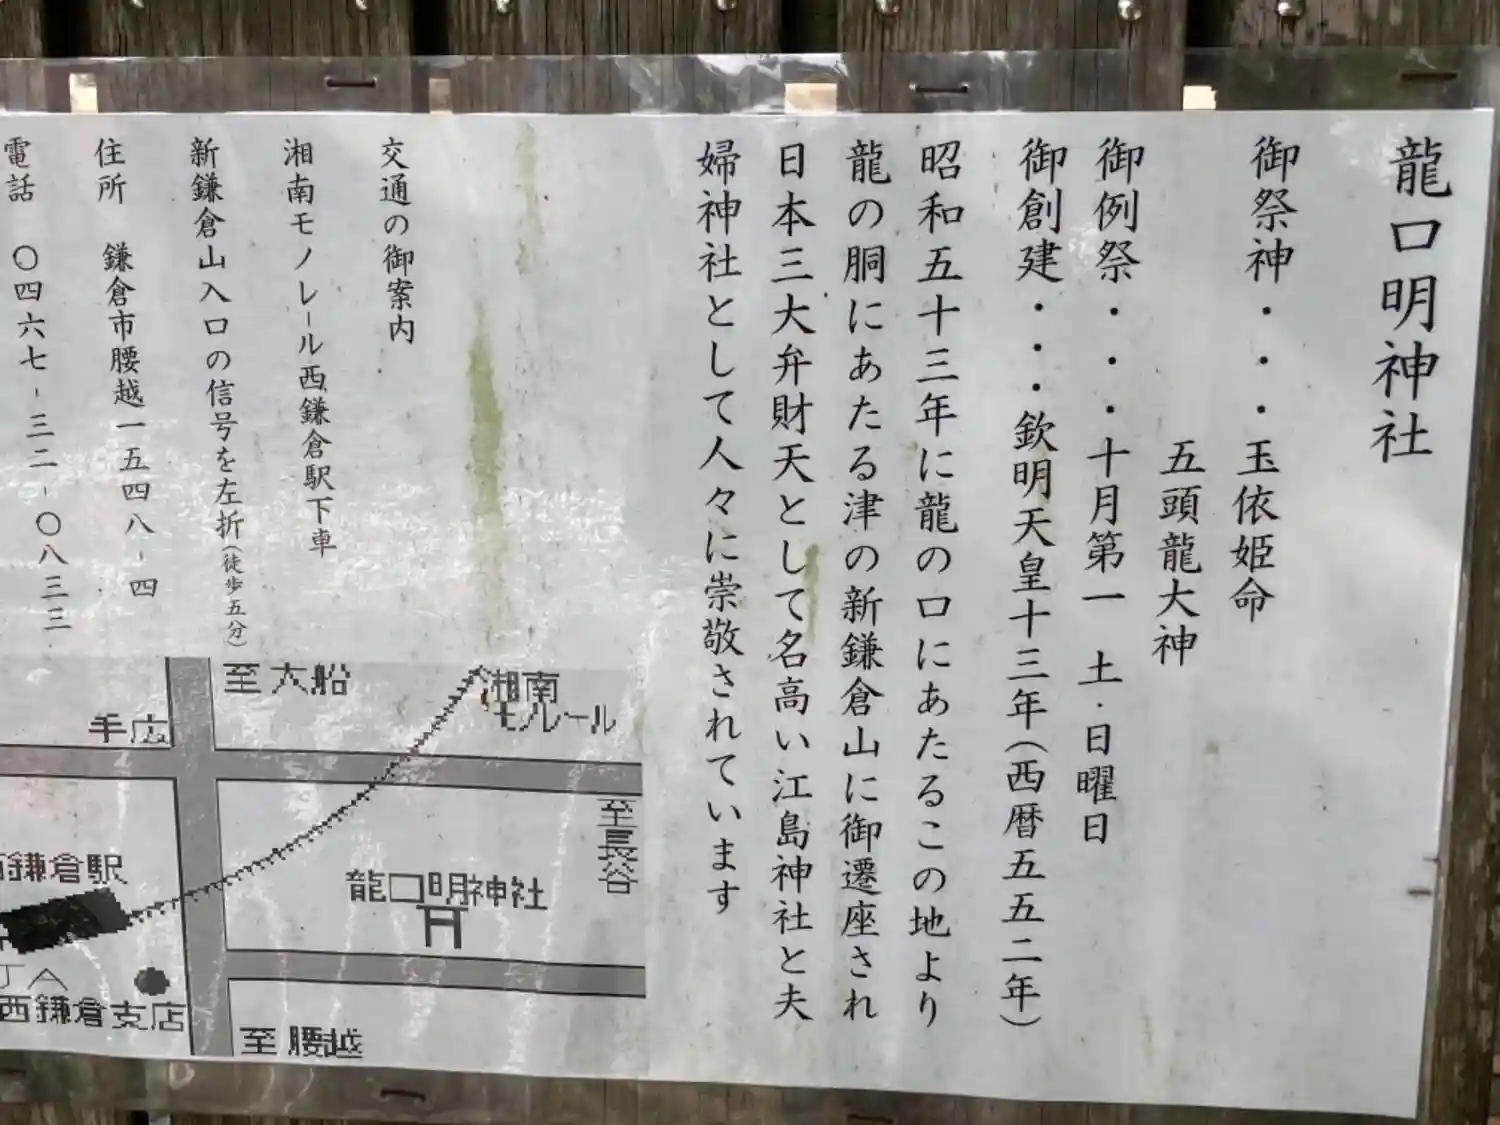 龍口明神社
御祭神・・・玉依姫命
五頭龍大神
御例祭・・・十月第一 土・日曜日
御創建・・・欽明天皇十三年(西暦五五二年)
昭和五十三年に龍の口にあたるこの地より
龍の胴にあたる津の新鎌倉山に御遷座され
日本三大弁財天として名高い江島神社と夫
婦神社として人々に崇敬されています
交通の御案内
湘南モノレール西鎌倉駅下車
新鎌倉山入口の信号を左折(徒歩五分)
住所 鎌倉市腰越一五四八-四
電話 〇四六七-三二-〇八三三
至大船
湘南
モノレール
手広
至長谷
西鎌倉駅
龍口明神社
JA
西鎌倉支店
至腰越